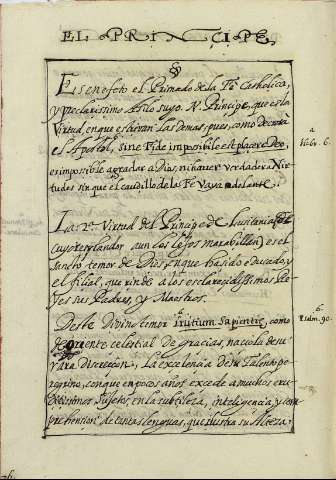 EL PRINCIPE
Es en efeto el Primado de la Fe Catholica,
y Preclarissimo Asilo suyo. N. Principe, que es la
Virtud, en que estrivan las demas, pues, como Decreta
el Apostol, sine Fide impossibile est placere Deo,
es impossible agradar a Dios, ni haver verdaderas Vir-
tudes sin que el caudillo de la Fe Vaya adelante.
a
Hebr. 6.
La 2ª Virtud del Principe de Lusitania
cuyo resplandor aun los lejos maravillan) es el
Sancto temor de Dios, en que ha sido educado, y
el filial, que rinde a los esclarecidissimos Re-
yes sus Padres, y Maestros.
Deste Divino temor initium Sapientie, como
de oriente celestial de gracias, nacio la de su
rara Discrecion, La excelencia de su Talento pe-
regrino, con que en pocos años excede a muchos
Sujetos, en la subtileza, inteligencia, y com-
prehension de tantas lenguas, que ilustra su Alteza.
6.
Psalm. 90.